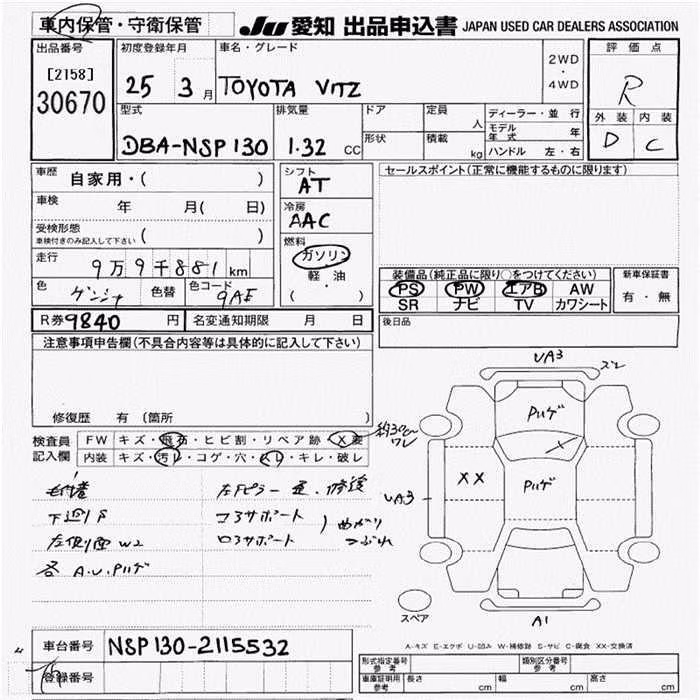 車内保管・守衛保管
JU 愛知 出品申込書 JAPAN USED CAR DEALERS ASSOCIATION
出品番号 初度登録年月 車名・グレード 2WD・4WD 評価点
[2158] 25 3月 TOYOTA VITZ R
30670
型式 排気量 ドア 定員 人 ディーラー・並行 外装 内装
形状 積載 kg モデル年式 年
DBA-NSP130 1.32 CC ハンドル 左・右 D C
車歴 自家用・( ) シフト AT セールスポイント(正常に機能するものに限ります)
車検 年 月( 日) 冷房 AAC
受検形態 車検付きのみ記入して下さい ( )
燃料 ガソリン 軽・油 ( )
走行 9万9千881km
装備品(純正品に限り○をつけてください) 新車保証書
色 色替 色コード 9AE PS PW エアB AW 有・無
SR ナビ TV カワシート
R券 9840 円 名変通知期限 月 日 後日品
注意事項申告欄(不具合内容等は具体的に記入して下さい)
修復歴 有 (箇所 )
UA3
検査員記入欄 FW キズ・飛石・ヒビ割・リペア跡・X要
内装 キズ・汚レ・コゲ・穴・スリ・キレ・破レ
Pハゲ
XX
Pハゲ
UA3
下廻りS
コアサポート
左側面W2
ロアサポート
各 A.U.Pハゲ
スペア
A1
A-キズ E-エクボ U-凹み W-補修跡 S-サビ C-腐食 XX-交換済
車台番号 NSP130-2115532
登録番号
形式指定番号 参考 類別区分番号 参考
車庫証明用 参考 長さ cm 幅 cm 高さ cm